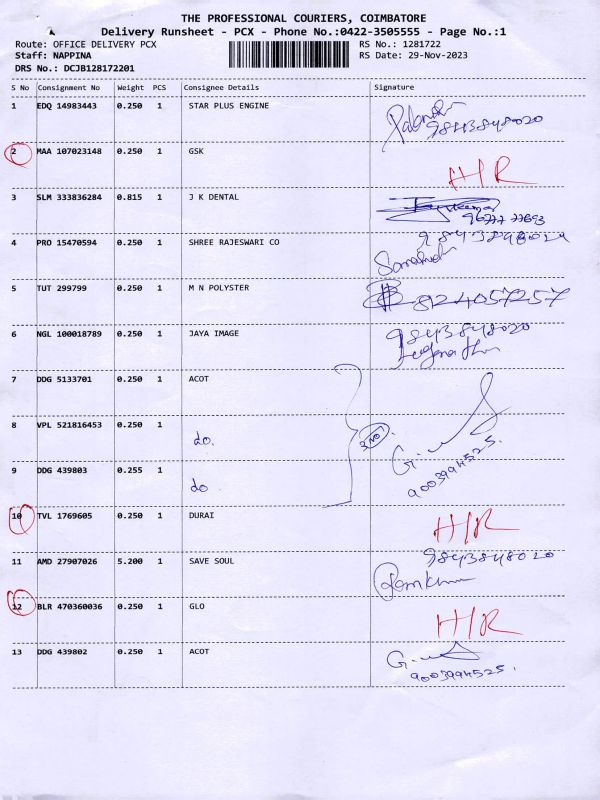 THE PROFESSIONAL COURIERS, COIMBATORE
Delivery Runsheet - PCX - Phone No.:0422-3505555 - Page No.:1
Route: OFFICE DELIVERY PCX RS No.: 1281722
Staff: NAPPINA RS Date: 29-Nov-2023
DRS No.: DCJB128172201
S No Consignment No Weight PCS Consignee Details Signature
1 EDQ 14983443 0.250 1 STAR PLUS ENGINE
9843848020
2 MAA 107023148 0.250 1 GSK
H/R
3 SLM 333836284 0.815 1 J K DENTAL
4 PRO 15470594 0.250 1 SHREE RAJESWARI CO
5 TUT 299799 0.250 1 M N POLYSTER
8124057257
6 NGL 100018789 0.250 1 JAYA IMAGE 9843848020
7 DDG 5133701 0.250 1 ACOT
8 VPL 521816453 0.250 1
do.
9 DDG 439803 0.255 1
do
9003994525.
10 TVL 1769605 0.250 1 DURAI
H/R
11 AMD 27907026 5.200 1 SAVE SOUL 9843848020
12 BLR 470360036 0.250 1 GLO
H/R
13 DDG 439802 0.250 1 ACOT
9003994525.